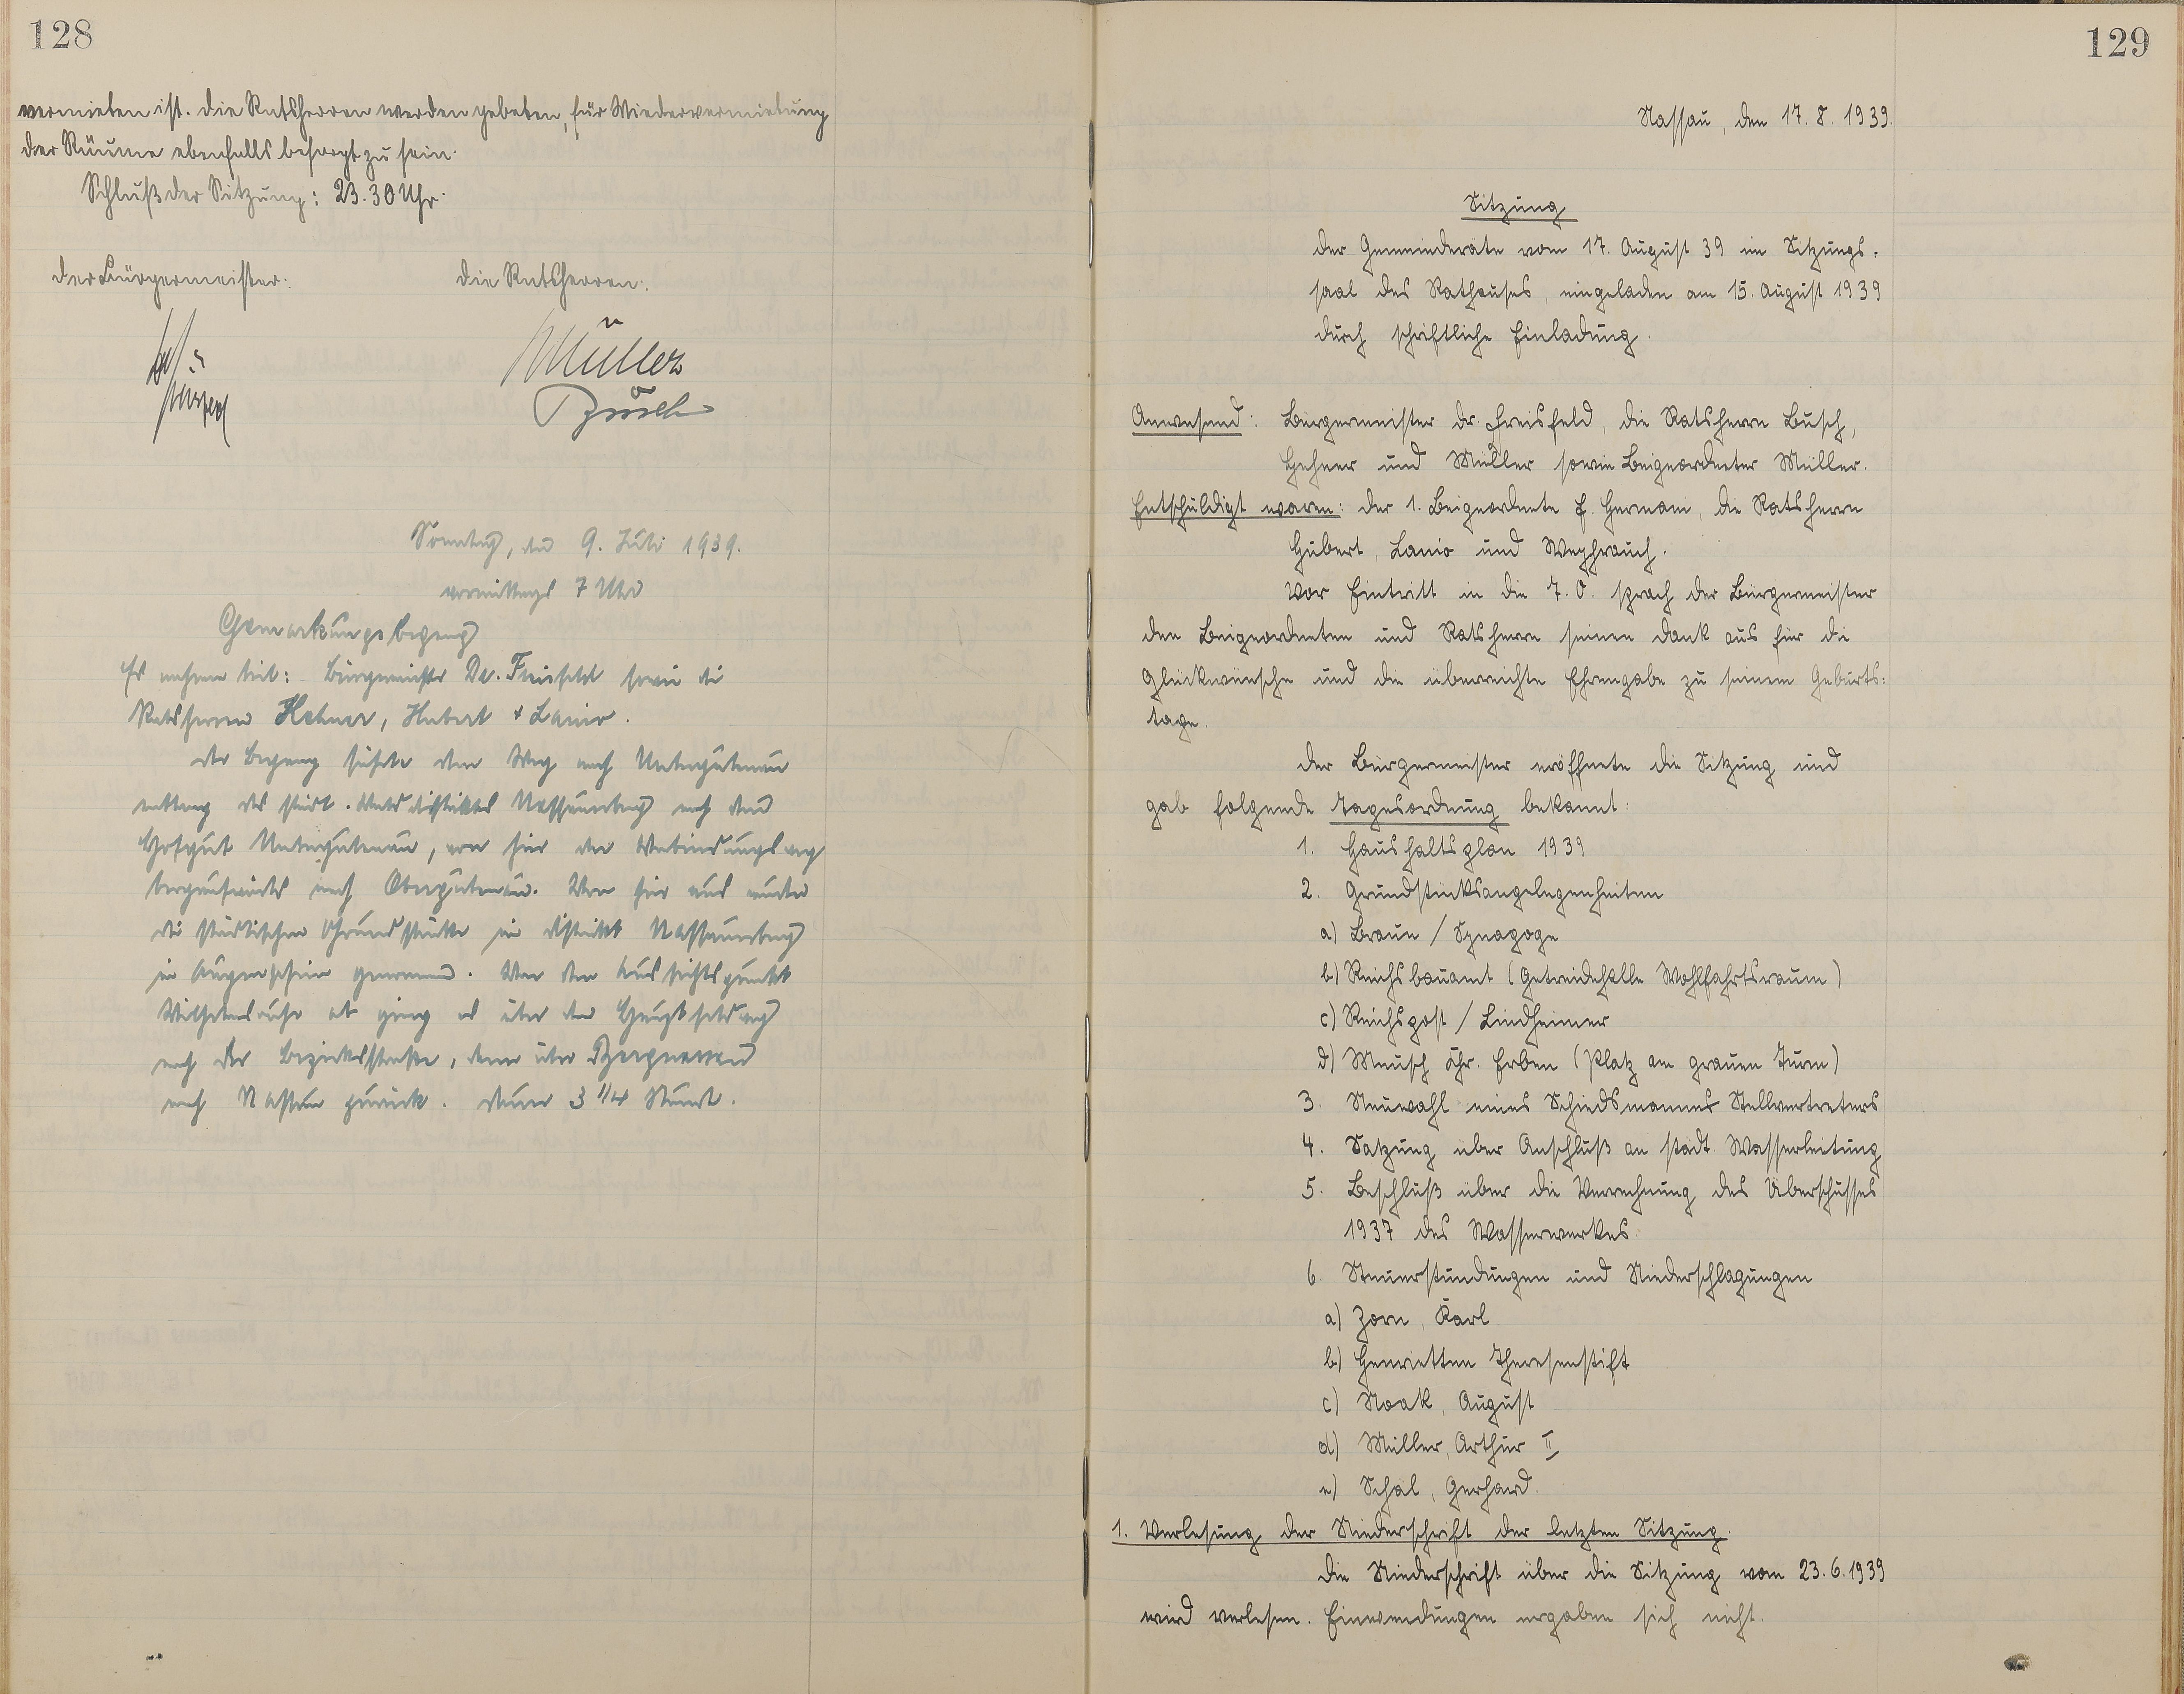 128
vermieten ist. Die Ratsherren werden gebeten, für Wiedervermietung
der Räume ebenfalls besorgt zu sein.
Schluß der Sitzung: 23.30 Uhr.
Der Bürgermeister:
Die Ratsherren:
Müller
Busch
Sonntag, den 9. Juli 1939.
vormittags 7 Uhr
Gemarkungsbegang
Es nahmen teil: Bürgermeister Dr. Freisfeld sowie die
Ratsherren Hehner, Hubert + Lanio.
Der Begang führte den Weg nach Untergutenau
entlang des städt. Walddistriktes Nassauerberg nach dem
Hofgut Untergutenau, von hier den Verbindungsweg
bergaufwärts nach Obergutenau. Von hier aus wurden
die städtischen Grundstücke im Distrikt Nassauerberg
in Augenschein genommen. Von dem Aussichtspunkt
Wilhelmsruhe ab ging es über den
nach der Bezirksstraße, dann über Bergnassau
nach Nassau zurück. Dauer 3 1/4 Stund.
129
Nassau, den 17. 8. 1939.
Sitzung
der Gemeinderäte vom 17. August 39 im Sitzungs-
saal des Rathauses, eingeladen am 15. August 1939
durch schriftliche Einladung.
Anwesend: Bürgermeister Dr. Freisfeld, die Ratsherrn Busch,
Hehner und Müller sowie Beigeordneter Müller.
Entschuldigt waren: der 1. Beigeordnete E. Hermani, die Ratsherrn
Hubert, Lanio und Weyhrauch.
Vor Eintritt in die T. O. sprach der Bürgermeister
den Beigeordneten und Ratsherrn seinen Dank aus für die
Glückwünsche und die überreichte Ehrengabe zu seinem Geburts-
tage.
Der Bürgermeister eröffnete die Sitzung und
gab folgende Tagesordnung bekannt:
1. Haushaltsplan 1939
2. Grundstücksangelegenheiten
a) Braun / Synagoge
b) Reichsbauamt (Getreidehalle Wohlfahrtsraum)
c) Reichspost / Lindheimer
d) Meusch Chr. Erben (Platz am grauen Turm)
3. Neuwahl eines Schiedsmannes Stellvertreters
4. Satzung über Anschluß an städt. Wasserleitung
5. Beschluß über die Verrechnung des Überschusses
1937 des Wasserwerkes.
6. Steuerstundungen und Niederschlagungen
a) Zorn, Karl
b) Henrietten Theresenstift
c) Noak, August
d) Müller, Arthur II
e) Schal, Gerhard.
1. Verlesung der Niederschrift der letzten Sitzung.
Die Niederschrift über die Sitzung vom 23.6.1939
wird verlesen. Einwendungen ergaben sich nicht.